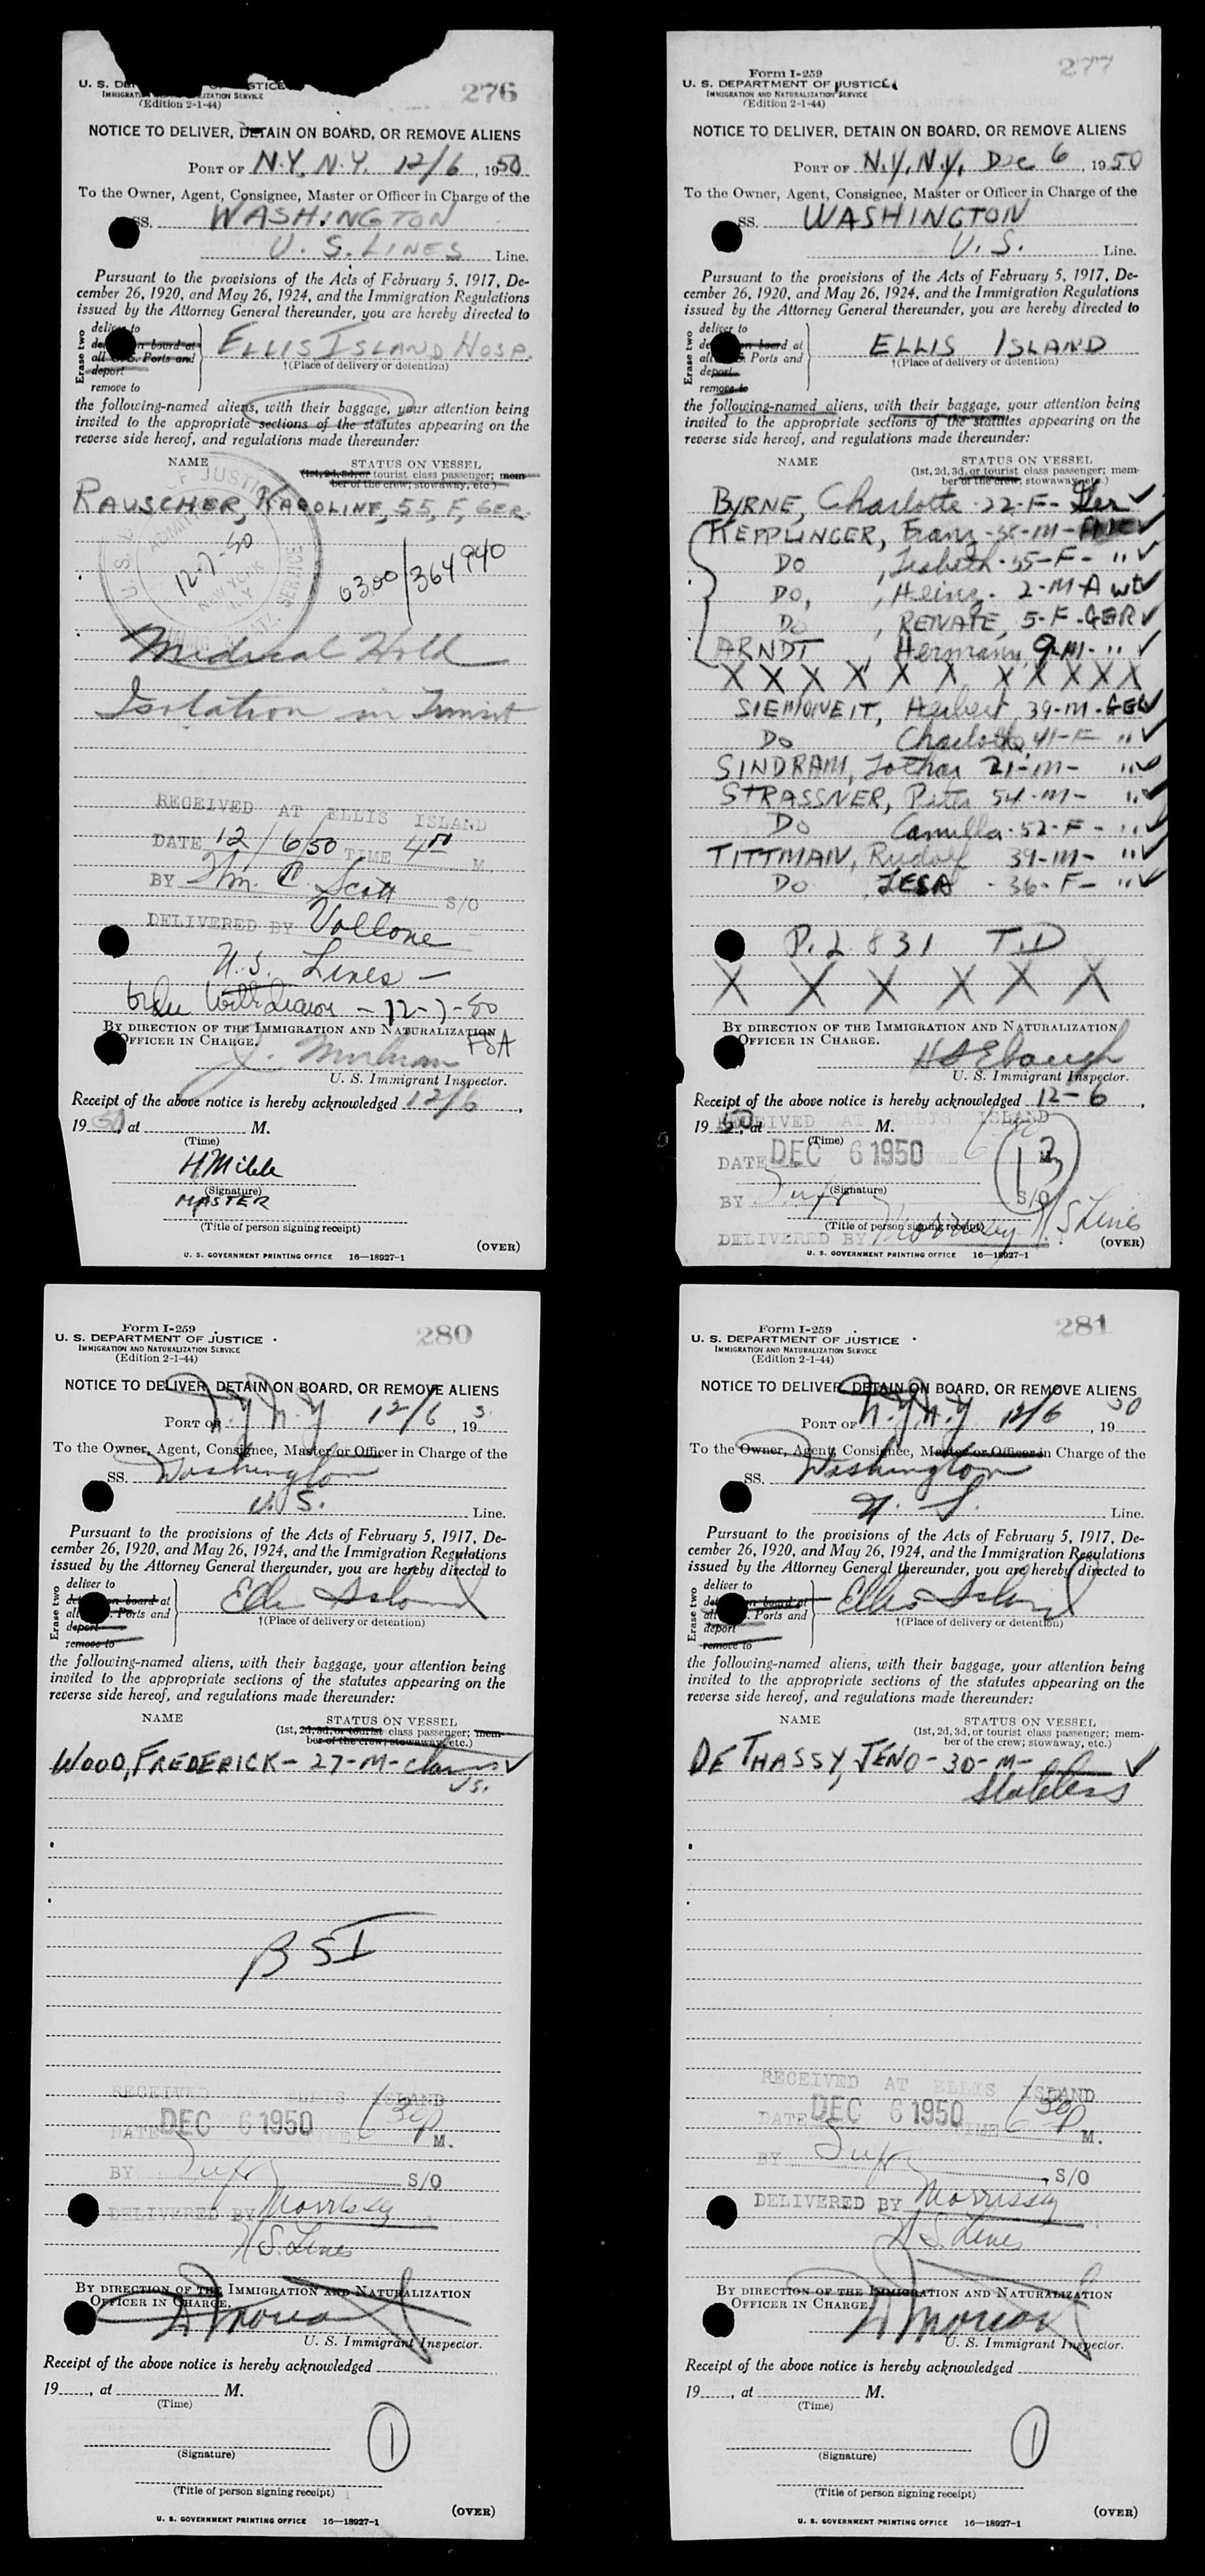 276
U. S. DE OF STICE
IMMIGRATI IZATION SERVICE
(Edition 2-1-44)
NOTICE TO DELIVER, DETAIN ON BOARD, OR REMOVE ALIENS
PORT OF N.Y. N.Y. 12/6, 1950
To the Owner, Agent, Consignee, Master or Officer in Charge of the
SS. WASHINGTON
U. S. LINES Line.
Pursuant to the provisions of the Acts of February 5, 1917, De-
cember 26, 1920, and May 26, 1924, and the Immigration Regulations
issued by the Attorney General thereunder, you are hereby directed to
Erase two
deliver to
de n board at
all S. Ports and
deport
remove to
ELLIS ISLAND HOSP.
†(Place of delivery or detention)
the following-named aliens, with their baggage, your attention being
invited to the appropriate sections of the statutes appearing on the
reverse side hereof, and regulations made thereunder:
NAME STATUS ON VESSEL
(1st, 2d, 3d, or tourist class passenger; mem-
ber of the crew; stowaway, etc.)
RAUSCHER, KAROLINE, 55, F, GER.
12-7-50
0300/364940
Medical Hold
Isolation in Transit
RECEIVED AT ELLIS ISLAND
DATE 12/6/50 TIME 4 M.
BY Wm. C. Scott S/O
DELIVERED BY Vollone
U.S. Lines —
12-7-50
BY DIRECTION OF THE IMMIGRATION AND NATURALIZATION
OFFICER IN CHARGE.
U. S. Immigrant Inspector.
Receipt of the above notice is hereby acknowledged 12/6,
1950, at M.
(Time)
(Signature)
MASTER
(Title of person signing receipt)
(OVER)
U. S. GOVERNMENT PRINTING OFFICE 16—18927-1
277
Form I-259
U. S. DEPARTMENT OF JUSTICE
IMMIGRATION AND NATURALIZATION SERVICE
(Edition 2-1-44)
NOTICE TO DELIVER, DETAIN ON BOARD, OR REMOVE ALIENS
PORT OF N.Y. N.Y. Dec 6, 1950
To the Owner, Agent, Consignee, Master or Officer in Charge of the
SS. WASHINGTON
U. S. Line.
Pursuant to the provisions of the Acts of February 5, 1917, De-
cember 26, 1920, and May 26, 1924, and the Immigration Regulations
issued by the Attorney General thereunder, you are hereby directed to
Erase two
deliver to
de n board at
all S. Ports and
deport
remove to
ELLIS ISLAND
†(Place of delivery or detention)
the following-named aliens, with their baggage, your attention being
invited to the appropriate sections of the statutes appearing on the
reverse side hereof, and regulations made thereunder:
NAME STATUS ON VESSEL
(1st, 2d, 3d, or tourist class passenger; mem-
ber of the crew; stowaway, etc.)
BYRNE, Charlotte - 22-F- Ger ✓
KEPPLINGER, Franz - M - ✓
Do , - 55-F- " ✓
Do, , Heinz - 2-M-A ✓
Do , RENATE, 5-F-GER ✓
ARNDT , Hermann, 9-M- " ✓
X X X X X X X X X X X
SIEMONEIT, Herbert, 39-M-GER ✓
Do Charlotte, 41-F " ✓
SINDRAM, Lothar 21-M- " ✓
STRASSNER, Peter 54-M- " ✓
Do Camilla - 52-F- " ✓
TITTMAN, Rudolf 39-M- " ✓
Do , - 36-F- " ✓
P.L 831 T.D
X X X X X X
BY DIRECTION OF THE IMMIGRATION AND NATURALIZATION
OFFICER IN CHARGE.
U. S. Immigrant Inspector.
Receipt of the above notice is hereby acknowledged 12-6,
1950, at M.
RECEIVED AT ELLIS ISLAND
(Time)
DATE DEC 6 1950 TIME 6
13
(Signature)
BY S/O
(Title of person signing receipt)
DELIVERED BY Morrissey U.S Lines
(OVER)
U. S. GOVERNMENT PRINTING OFFICE 16—18927-1
280
Form I-259
U. S. DEPARTMENT OF JUSTICE
IMMIGRATION AND NATURALIZATION SERVICE
(Edition 2-1-44)
NOTICE TO DELIVER, DETAIN ON BOARD, OR REMOVE ALIENS
PORT OF N.Y N.Y 12/6, 195
To the Owner, Agent, Consignee, Master or Officer in Charge of the
SS. Washington
U. S. Line.
Pursuant to the provisions of the Acts of February 5, 1917, De-
cember 26, 1920, and May 26, 1924, and the Immigration Regulations
issued by the Attorney General thereunder, you are hereby directed to
Erase two
deliver to
det n board at
all S. Ports and
deport
remove to
Ellis Island
†(Place of delivery or detention)
the following-named aliens, with their baggage, your attention being
invited to the appropriate sections of the statutes appearing on the
reverse side hereof, and regulations made thereunder:
NAME STATUS ON VESSEL
(1st, 2d, 3d, or tourist class passenger; mem-
ber of the crew; stowaway, etc.)
WOOD, FREDERICK - 27-M- ✓
BSI
RECEIVED AT ELLIS ISLAND
DATE DEC 6 1950 TIME 630p M.
BY S/O
DELIVERED BY Morrissey
U.S. Lines
BY DIRECTION OF THE IMMIGRATION AND NATURALIZATION
OFFICER IN CHARGE.
U. S. Immigrant Inspector.
Receipt of the above notice is hereby acknowledged
19, at M.
(Time)
1
(Signature)
(Title of person signing receipt)
(OVER)
U. S. GOVERNMENT PRINTING OFFICE 16—18927-1
281
Form I-259
U. S. DEPARTMENT OF JUSTICE
IMMIGRATION AND NATURALIZATION SERVICE
(Edition 2-1-44)
NOTICE TO DELIVER, DETAIN ON BOARD, OR REMOVE ALIENS
PORT OF N.Y N.Y 12/6, 1950
To the Owner, Agent, Consignee, Master or Officer in Charge of the
SS. Washington
U. S. Line.
Pursuant to the provisions of the Acts of February 5, 1917, De-
cember 26, 1920, and May 26, 1924, and the Immigration Regulations
issued by the Attorney General thereunder, you are hereby directed to
Erase two
deliver to
de n board at
all S. Ports and
deport
remove to
Ellis Island
†(Place of delivery or detention)
the following-named aliens, with their baggage, your attention being
invited to the appropriate sections of the statutes appearing on the
reverse side hereof, and regulations made thereunder:
NAME STATUS ON VESSEL
(1st, 2d, 3d, or tourist class passenger; mem-
ber of the crew; stowaway, etc.)
DE THASSY, JENO - 30-M- ✓
Stateless
RECEIVED AT ELLIS ISLAND
DATE DEC 6 1950 TIME 630p M.
BY S/O
DELIVERED BY Morrissey
U.S. Lines
BY DIRECTION OF THE IMMIGRATION AND NATURALIZATION
OFFICER IN CHARGE.
U. S. Immigrant Inspector.
Receipt of the above notice is hereby acknowledged
19, at M.
(Time)
1
(Signature)
(Title of person signing receipt)
(OVER)
U. S. GOVERNMENT PRINTING OFFICE 16—18927-1